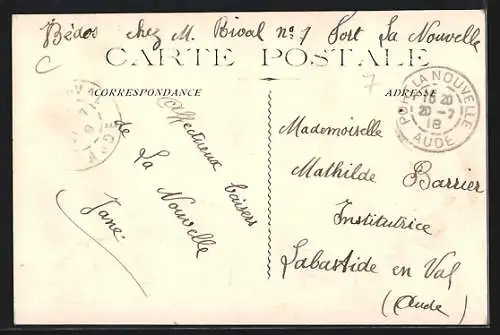 Bédos chez M. Rival n° 7 Port La Nouvelle
CARTE POSTALE
CORRESPONDANCE
ADRESSE
Affectueux baisers
de La Nouvelle
Jane
PORT LA NOUVELLE
15 20
20 - 7
18
AUDE
Mademoiselle
Mathilde Barrier
Institutrice
Labastide en Val
(Aude)